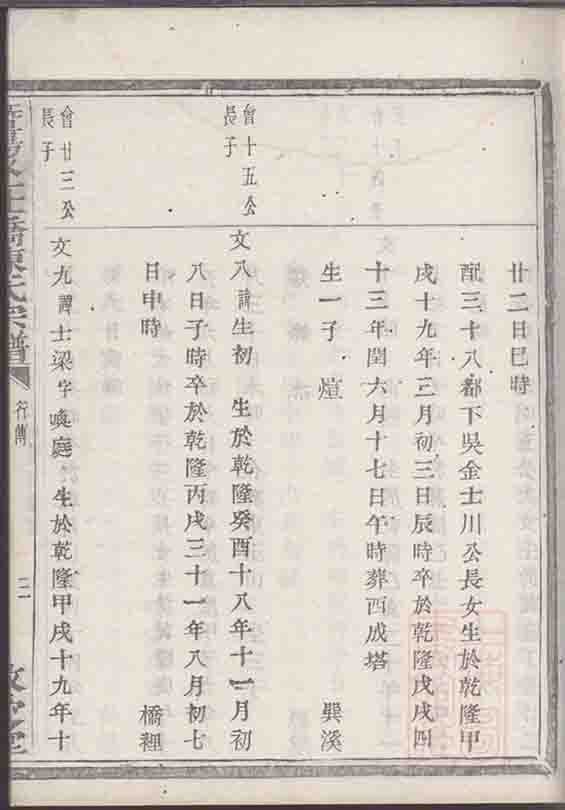 廿二日巳時
配三十八都下吳金士川公長女生於乾隆甲
戌十九年三月初三日辰時卒於乾隆戊戌四
十三年閏六月十七日午時葬西成塔
生一子 煊 巽溪
會十五公
長子
文八諱生初 生於乾隆癸酉十八年十一月初
八日子時卒於乾隆丙戌三十一年八月初七
日申時 橋裡
會廿三公
長子
文九諱士梁字喚庭 生於乾隆甲戌十九年十
宗譜 行傳